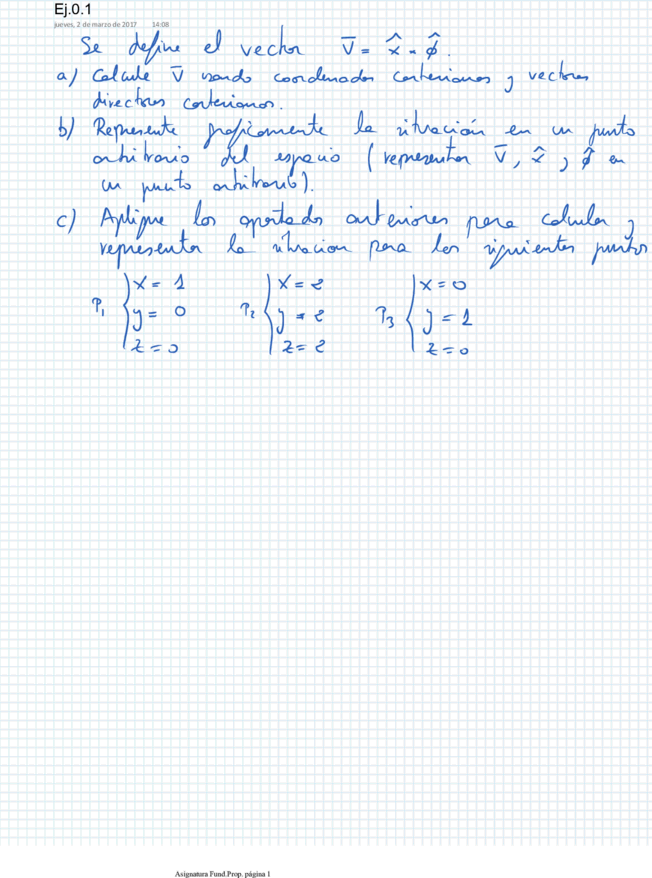 Ej.0.1
jueves, 2 de marzo de 2017 14:08
Se define el vector v̄ = x̂ - φ̂.
a) Calcule v̄ usando coordenadas cartesianas y vectores
directores cartesianos.
b) Represente graficamente la situación en un punto
arbitrario del espacio (representar v̄, x̂, φ̂ en
un punto arbitrario).
c) Aplique los apartados anteriores para calcular y
representar la situacion para los siguientes puntos
P₁ { x = 1 P₂ { x = 2 P₃ { x = 0
y = 0 y = 2 y = 1
z = 0 z = 2 z = 0
Asignatura Fund.Prop. página 1